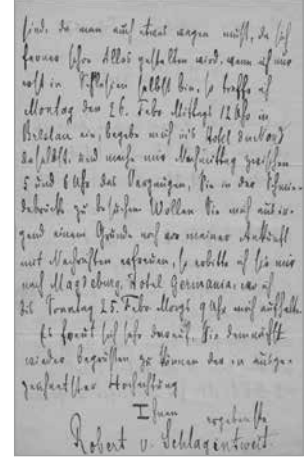 sind, da man auch etwas wagen muß, da sich
ferner schon Alles gestalten wird, wenn ich nur
erst in Schlesien selbst bin, so treffe ich
Montag den 26. Febr. Mittags 12 Uhr in
Breslau ein, begebe mich in's Hotel du Nord
daselbst, und mache mir Nachmittag zwischen
5 und 6 Uhr das Vergnügen, Sie in der Schmie-
debrücke zu besuchen. Wollen Sie mich aus ir-
gend einem Grunde noch vor meiner Ankunft
mit Nachrichten erfreuen, so erbitte ich sie mir
nach Magdeburg, Hotel Germania, wo ich
bis Sonntag 25. Febr. Morgs 9 Uhr mich aufhalte.
Es freut sich sehr darauf, Sie demnächst
wieder begrüßen zu können der in ausge-
zeichnetster Hochachtung
Ihnen ergebenste
Robert v. Schlagintweit.